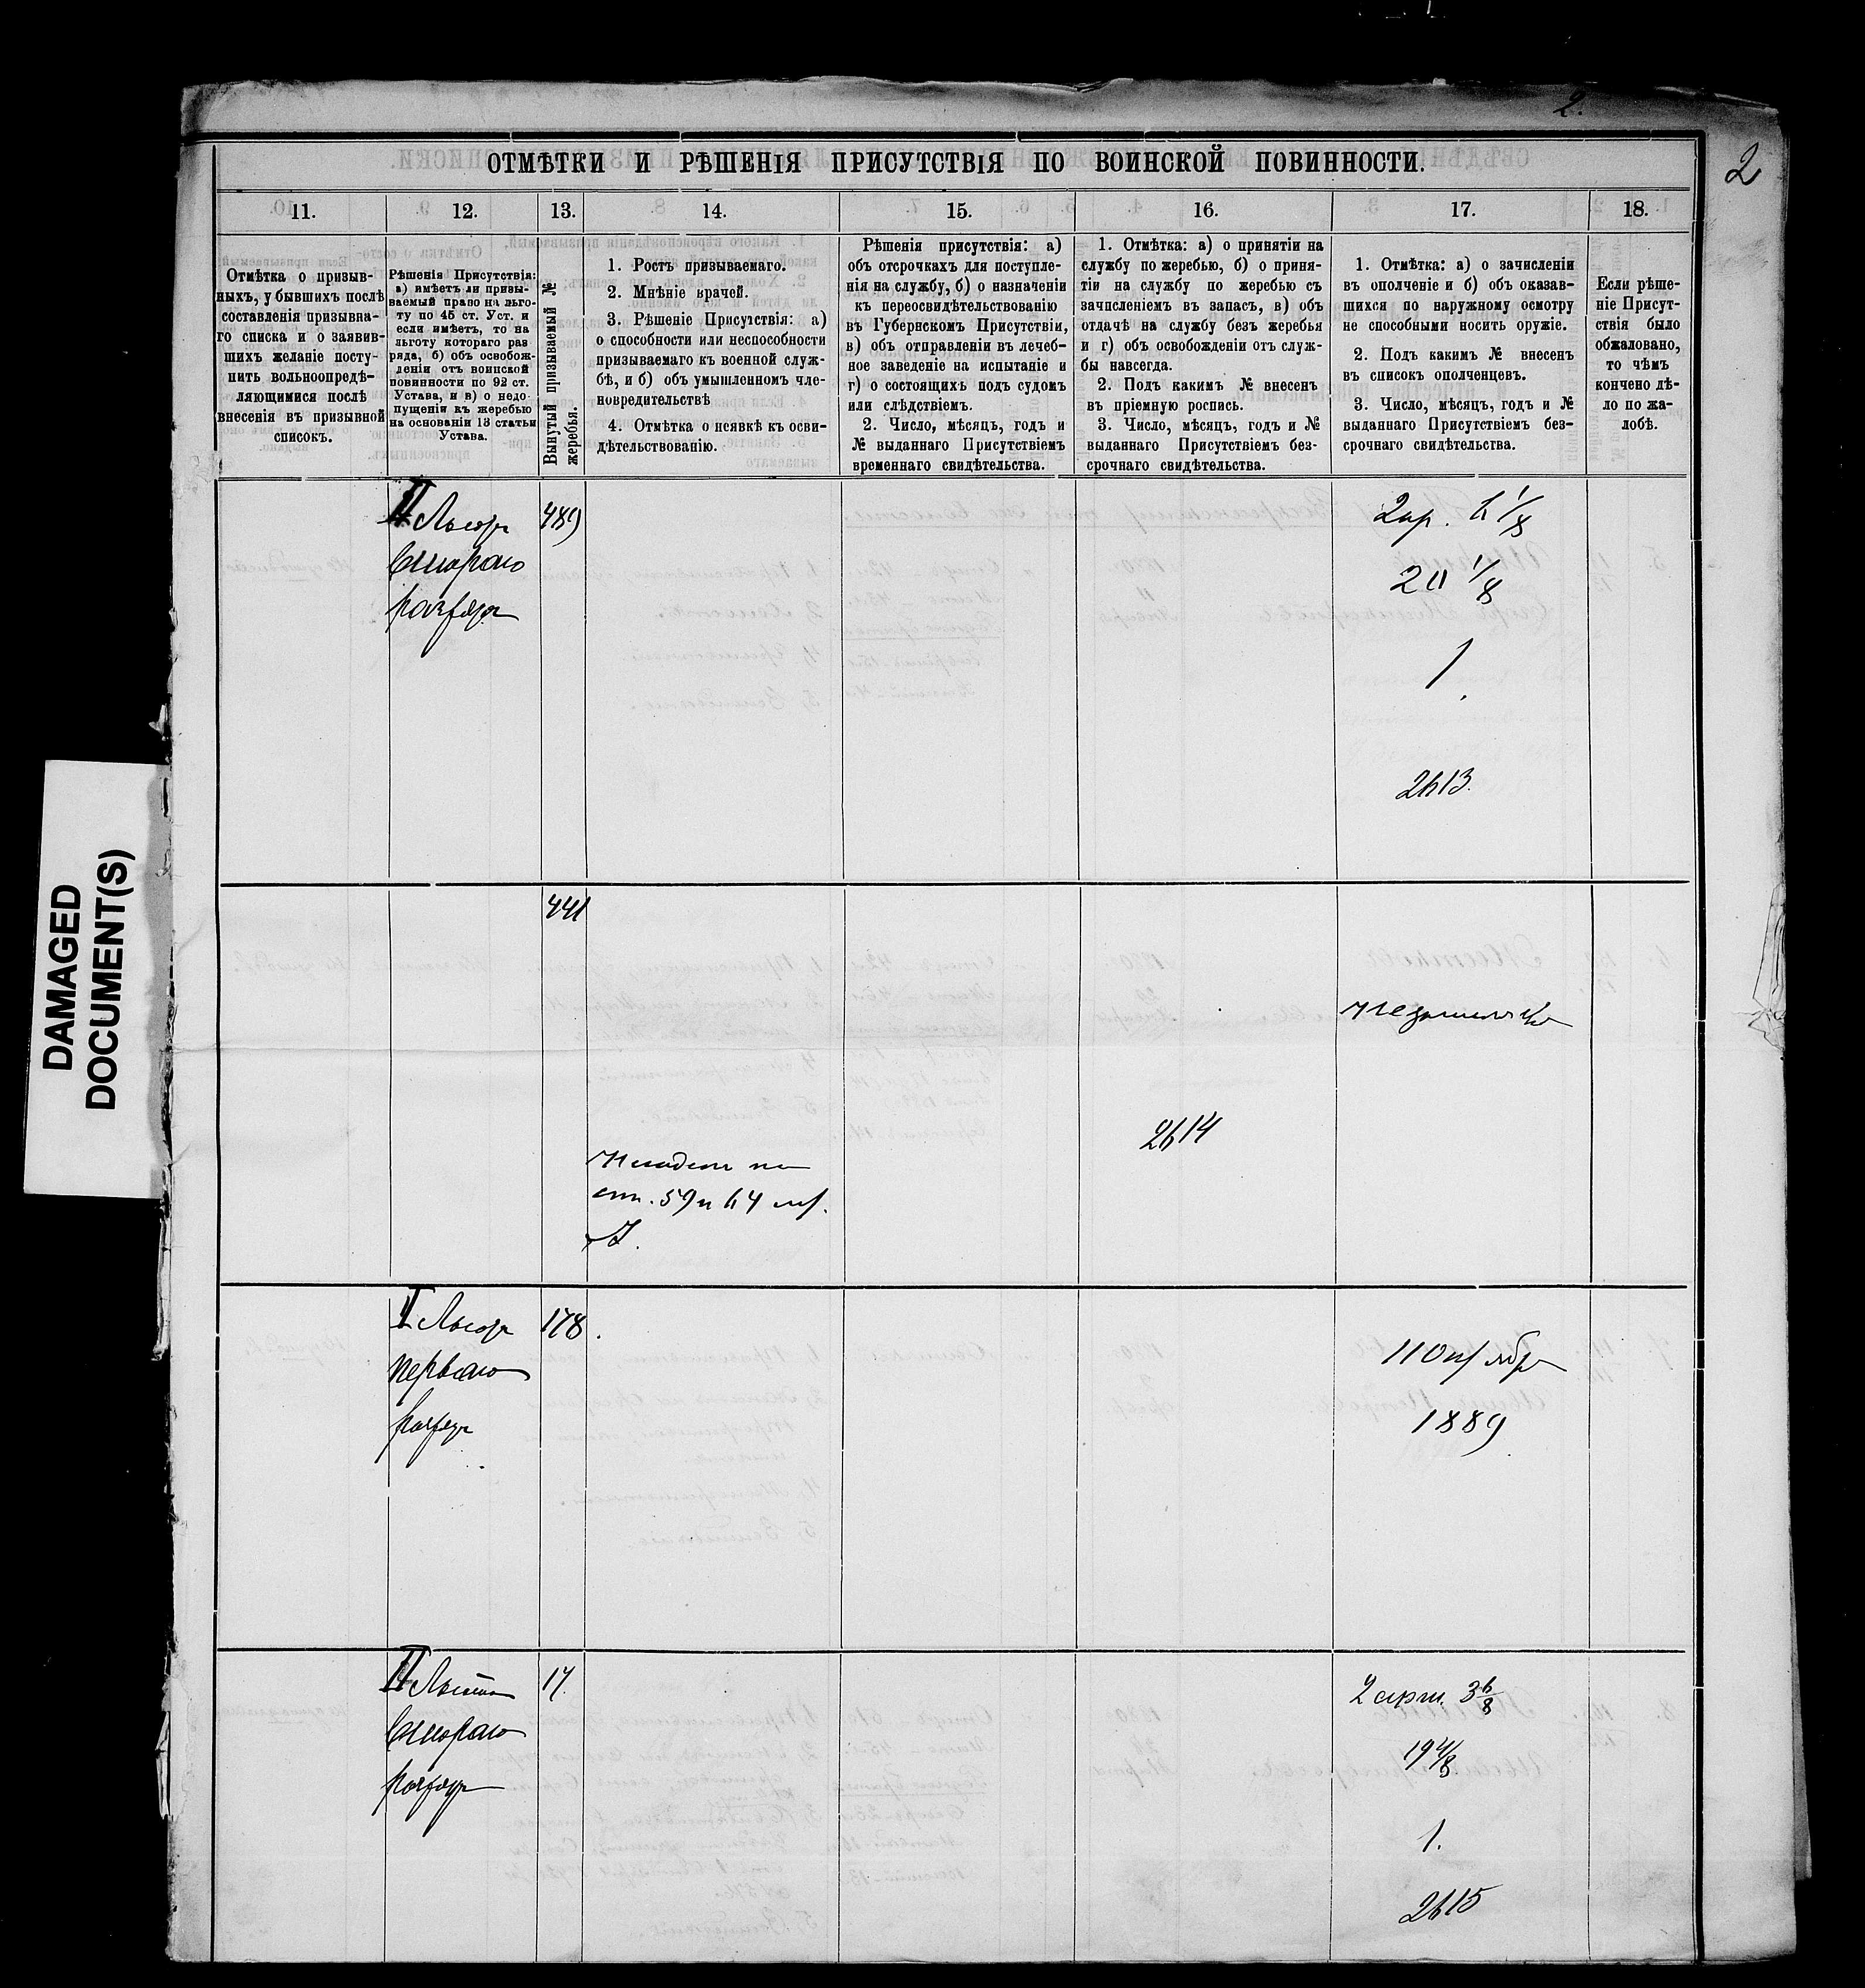 2.
2
ОТМѢТКИ И РѢШЕНІЯ ПРИСУТСТВІЯ ПО ВОИНСКОЙ ПОВИННОСТИ.
11.
12.
13.
14.
15.
16.
17.
18.
Отмѣтка о призыв-
ныхъ, у бывшихъ послѣ
составленія призывна-
го списка и о заявив-
шихъ желаніе посту-
пить вольноопредѣ-
ляющимися послѣ
внесенія въ призывной
списокъ.
Рѣшенія Присутствія:
а) имѣетъ ли призы-
ваемый право на льго-
ту по 45 ст. Уст. и
если имѣетъ, то на
льготу котораго раз
ряда, б) объ освобож-
деніи отъ воинской
повинности по 92 ст.
Устава, и в) о недо-
пущеніи къ жеребью
на основаніи 13 статьи
Устава.
Вынутый призываемый №
жеребья.
1. Ростъ призываемаго.
2. Мнѣніе врачей.
3. Рѣшеніе Присутствія: а)
о способности или неспособности
призываемаго къ военной служ-
бѣ, и б) объ умышленномъ чле-
новредительствѣ
4. Отмѣтка о неявкѣ къ осви-
дѣтельствованію.
Рѣшенія присутствія: а)
объ отсрочкахъ для поступле-
нія на службу, б) о назначеніи
къ переосвидѣтельствованію
въ Губернскомъ Присутствіи,
в) объ отправленіи въ лечеб-
ное заведеніе на испытаніе и
г) о состоящихъ подъ судомъ
или слѣдствіемъ.
2. Число, мѣсяцъ, годъ и
№ выданнаго Присутствіемъ
временнаго свидѣтельства.
1. Отмѣтка: а) о принятіи на
службу по жеребью, б) о приня-
тіи на службу по жеребью съ
зачисленіемъ въ запасъ, в) объ
отдачѣ на службу безъ жеребья
и г) объ освобожденіи отъ служ-
бы навсегда.
2. Подъ какимъ № внесенъ
въ пріемную роспись.
3. Число, мѣсяцъ, годъ и №
выданнаго Присутствіемъ без-
срочнаго свидѣтельства.
1. Отмѣтка: а) о зачисленіи
въ ополченіе и б) объ оказав-
шихся по наружному осмотру
не способными носить оружіе.
2. Подъ какимъ № внесенъ
въ списокъ ополченцевъ.
3. Число, мѣсяцъ, годъ и №
выданнаго Присутствіемъ без-
срочнаго свидѣтельства.
Если рѣше-
ніе Присут-
ствія было
обжаловано,
то чѣмъ
кончено дѣ-
ло по жа-
лобѣ.
II Льгота
втораго
разряда
489
2 ар. 6 1/8
20 1/8
1
2613.
441
2614
ст. 59 и 64
I Льгота
перваго
разряда
178.
11 Октября
1889
II Льгота
втораго
разряда
17.
2 арш. 3 6/8
19 4/8
1.
2615
DAMAGED
DOCUMENT(S)